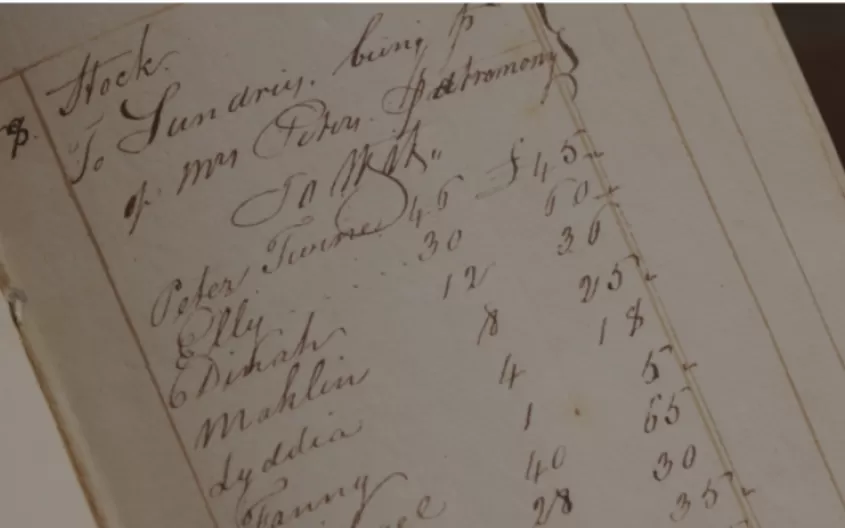 Stock
To Sundries, being p
of Mrs Peters Patromony
To Wit,,
Peter Twine 45 £45
Elly 30 60
Dinah 12 36
Mahlin 8 25
Lyddia 4 18
Fanny 1 5
40 65
28 30
35